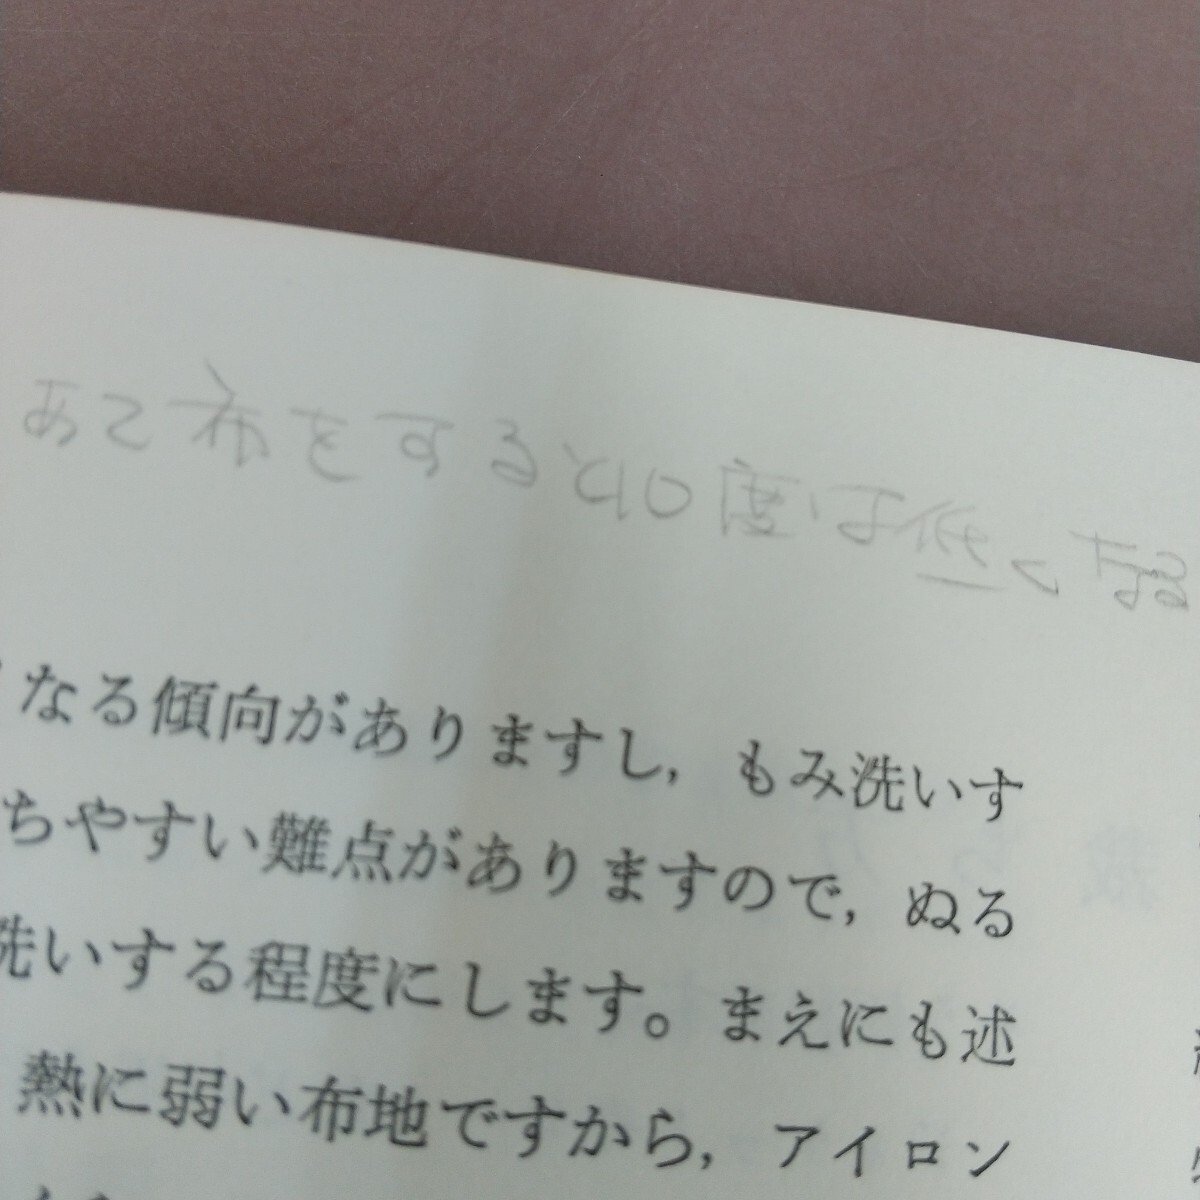 あて布をすると40度は低くなる
なる傾向がありますし，もみ洗いす
ちやすい難点がありますので，ぬる
洗いする程度にします。まえにも述
熱に弱い布地ですから，アイロン